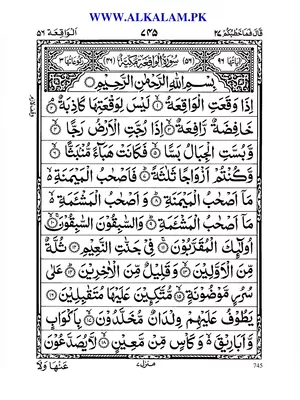 WWW.ALKALAM.PK
قَالَ فَمَا خَطْبُكُمْ ٢٧ ٧٤٥ اَلْوَاقِعَة ٥٦
اٰيَاتُهَا ٩٦ (٥٦) سُوْرَةُ الْوَاقِعَةِ مَكِّيَّةٌ (٤٦) رُكُوْعَاتُهَا ٣
بِسْمِ اللّٰهِ الرَّحْمٰنِ الرَّحِيْمِ
اِذَا وَقَعَتِ الْوَاقِعَةُ ۙ١ لَيْسَ لِوَقْعَتِهَا كَاذِبَةٌ ۘ٢
خَافِضَةٌ رَّافِعَةٌ ۙ٣ اِذَا رُجَّتِ الْاَرْضُ رَجًّا ۙ٤
وَّبُسَّتِ الْجِبَالُ بَسًّا ۙ٥ فَكَانَتْ هَبَآءً مُّنْۢبَثًّا ۙ٦
وَّكُنْتُمْ اَزْوَاجًا ثَلٰثَةً ؕ٧ فَاَصْحٰبُ الْمَيْمَنَةِ ۙ۬
مَاۤ اَصْحٰبُ الْمَيْمَنَةِ ؕ٨ وَاَصْحٰبُ الْمَشْـَٔمَةِ ۙ۬
مَاۤ اَصْحٰبُ الْمَشْـَٔمَةِ ؕ٩ وَالسّٰبِقُوْنَ السّٰبِقُوْنَ ۚۙ١٠
اُولٰٓئِكَ الْمُقَرَّبُوْنَ ۚ١١ فِيْ جَنّٰتِ النَّعِيْمِ ١٢ ثُلَّةٌ
مِّنَ الْاَوَّلِيْنَ ۙ١٣ وَقَلِيْلٌ مِّنَ الْاٰخِرِيْنَ ؕ١٤ عَلٰى
سُرُرٍ مَّوْضُوْنَةٍ ۙ١٥ مُّتَّكِـِٕيْنَ عَلَيْهَا مُتَقٰبِلِيْنَ ١٦
يَطُوْفُ عَلَيْهِمْ وِلْدَانٌ مُّخَلَّدُوْنَ ۙ١٧ بِاَكْوَابٍ
وَّاَبَارِيْقَ ۙ۬ وَكَاْسٍ مِّنْ مَّعِيْنٍ ۙ١٨ لَّا يُصَدَّعُوْنَ
عَنْهَا وَلَا منزل ٧ 745